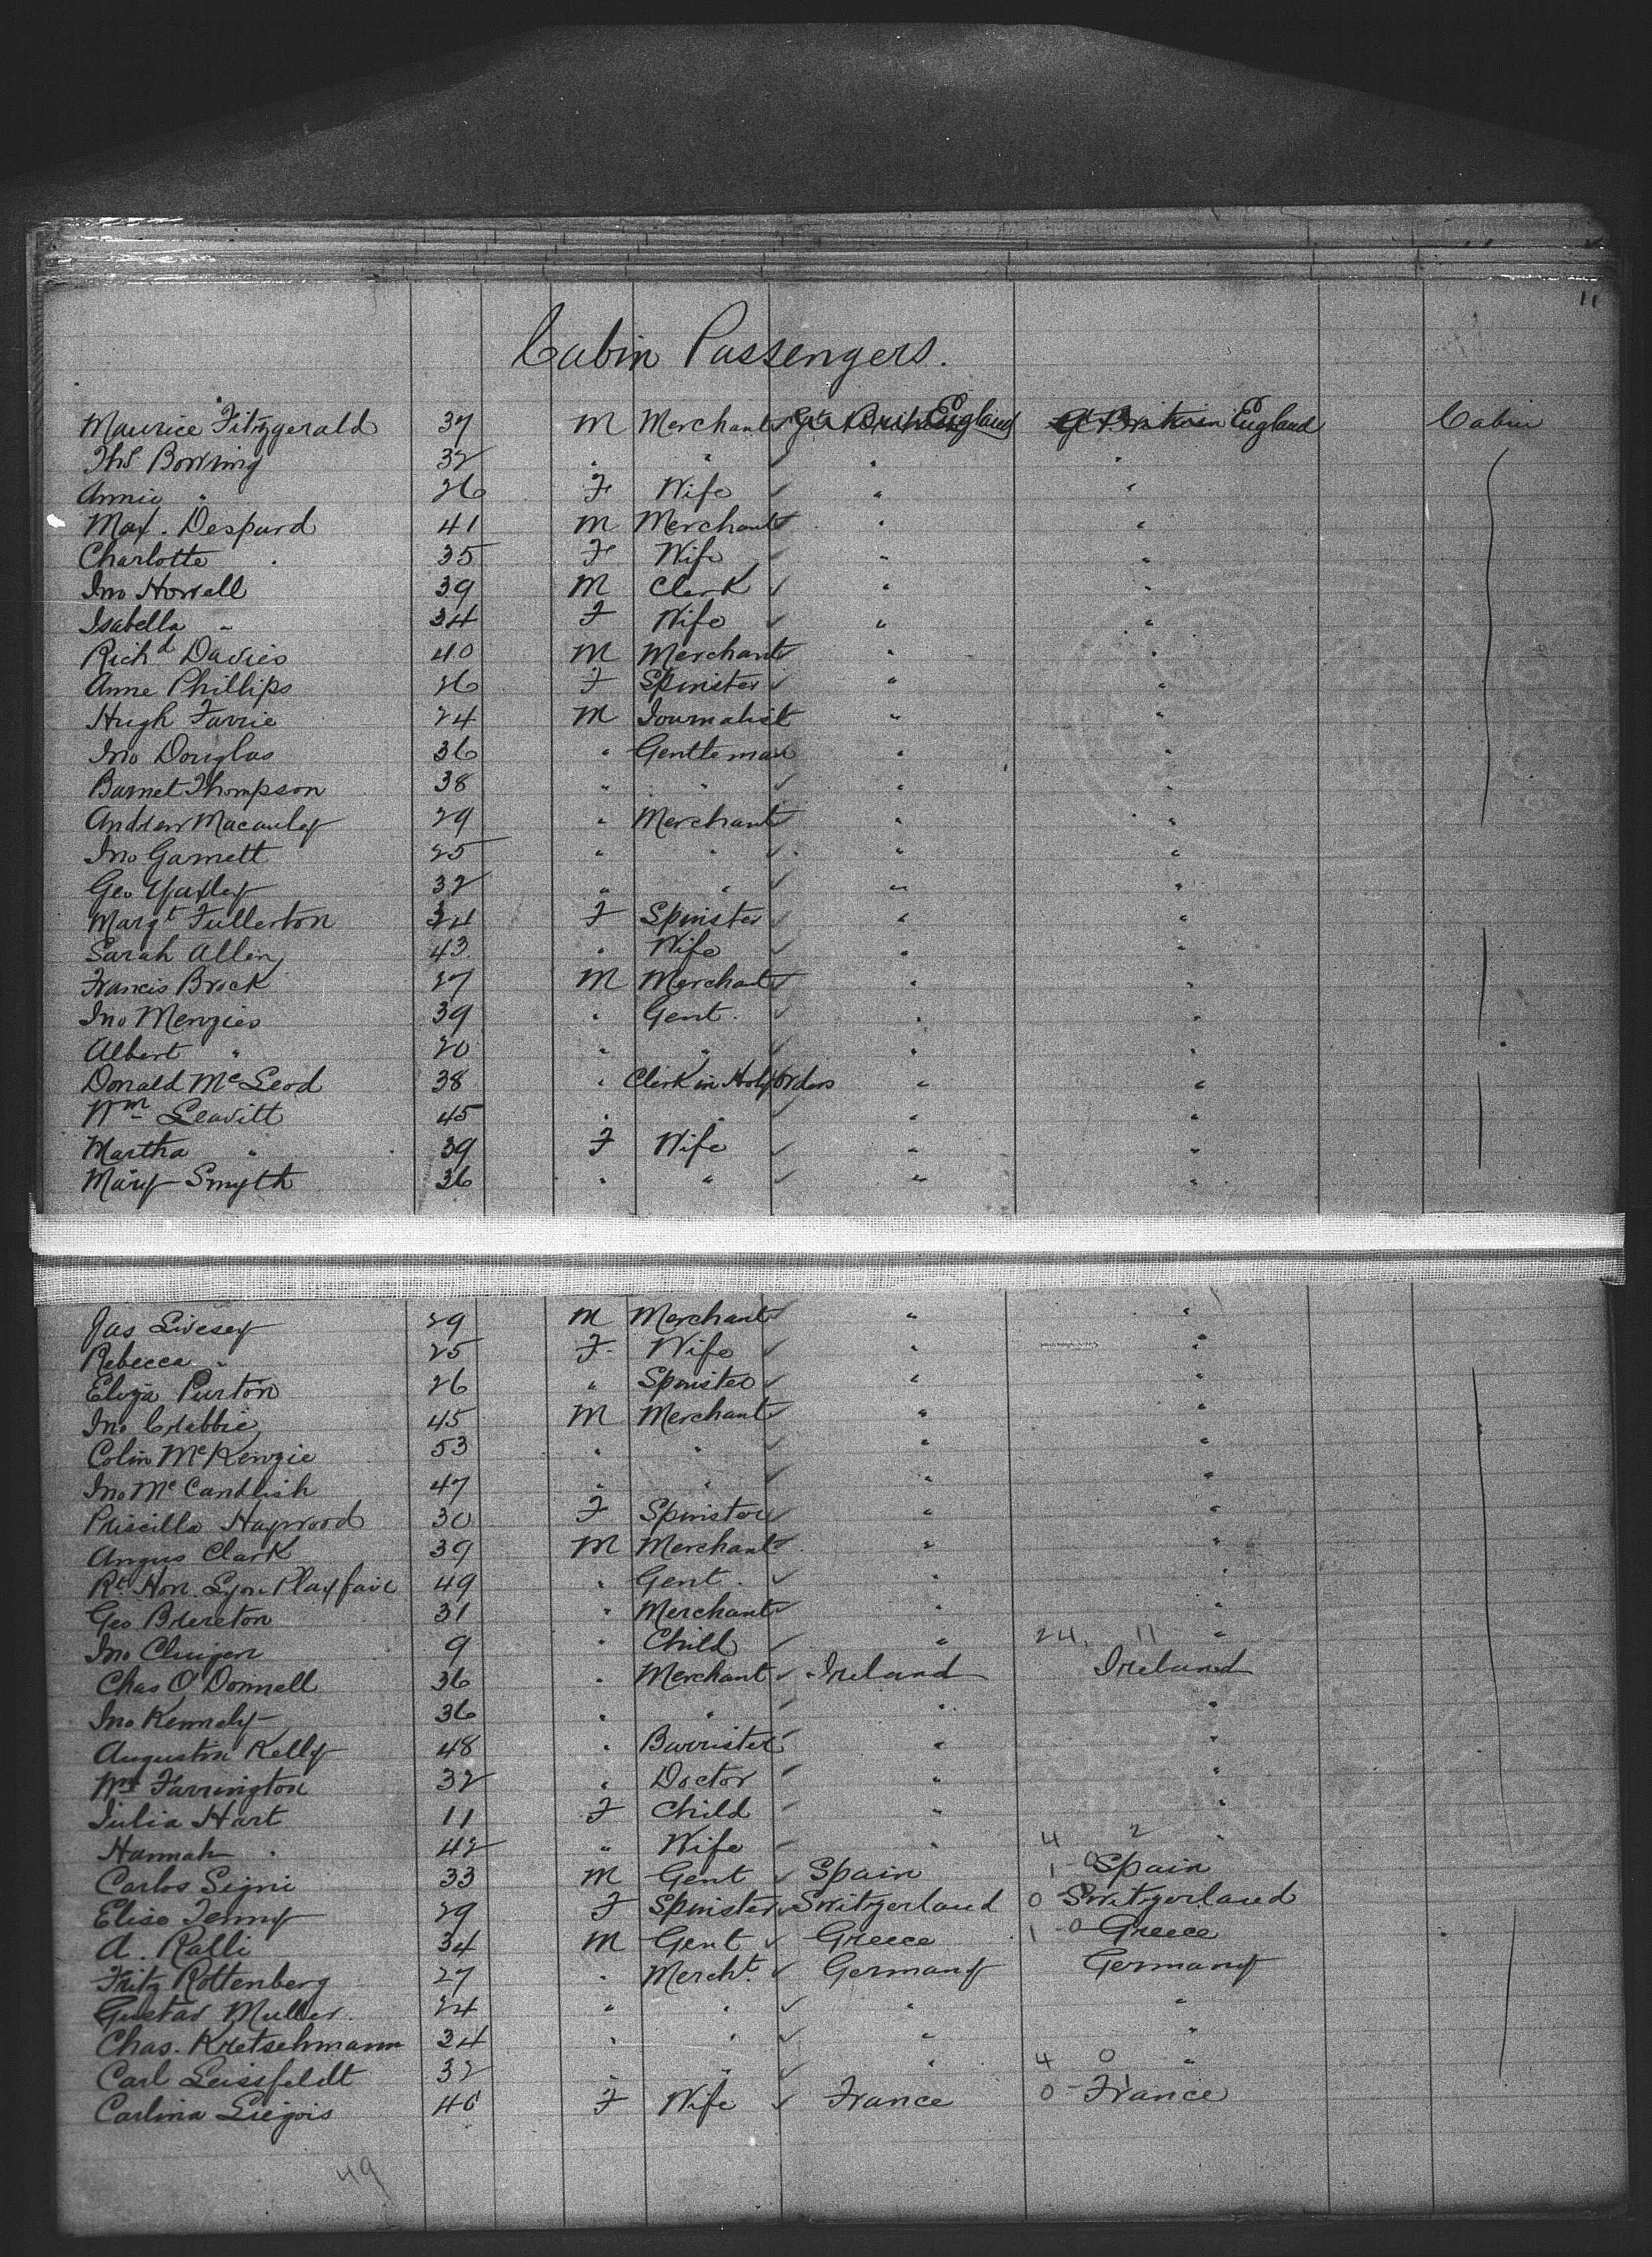 11
Cabin Passengers.
Maurice Fitzgerald 37 M Merchant ✓ Gt Britain England Gt Britain England Cabin
Thos Bowring 32 " " ✓ " "
Annie " 26 F Wife ✓ " "
Max. Despard 41 M Merchant ✓ " "
Charlotte " 35 F Wife ✓ " "
Jno Howell 39 M Clerk ✓ " "
Isabella " 34 F Wife ✓ " "
Richd Davies 40 M Merchant ✓ " "
Anne Phillips 26 F Spinster ✓ " "
Hugh Farrie 24 M Journalist " "
Jno Douglas 36 " Gentleman " "
Barnet Thompson 38 " " ✓ " "
Andrew Macauley 29 " Merchant ✓ " "
Jno Garnett 25 " " ✓ " "
Geo Yaxley 32 " " ✓ " "
Margt Fullerton F Spinster ✓ " "
Sarah Allen 43 " Wife ✓ " "
Francis Brock 27 M Merchant ✓ " "
Jno Menzies 39 " Gent. ✓ " "
Albert " 20 " " ✓ " "
Donald McLeod 38 " Clerk in Holy Orders " "
Wm Leavitt 45 " " ✓ " "
Martha " 39 F Wife ✓ " "
Mary Smyth 36 " " ✓ " "
Jas Livesey 29 M Merchant ✓ " "
Rebecca " 25 F Wife ✓ " "
Eliza Purton 26 " Spinster ✓ " "
Jno Crabbie 45 M Merchant ✓ " "
Colin McKenzie 53 " " ✓ " "
Jno McCandlish 47 " " ✓ " "
Priscilla Haywood 30 F Spinster ✓ " "
Angus Clark 39 M Merchant ✓ " "
Rt. Hon. Lyon Playfair 49 " Gent. ✓ " "
Geo Brereton 31 " Merchant ✓ " "
Jno 9 " Child ✓ " 24. 11 "
Chas O'Donnell 36 " Merchant ✓ Ireland Ireland
Jno Kennedy 36 " " ✓ " "
Augustin Kelly 48 " Barrister ✓ " "
Wm Farrington 32 " Doctor ✓ " "
Julia Hart 11 F Child ✓ " "
Hannah " 42 " Wife ✓ " 4 2 "
Carlos Signi 33 M Gent ✓ Spain 1 - 0 Spain
Elise Jenny 29 F Spinster ✓ Switzerland 0 Switzerland
A. Ralli 34 M Gent ✓ Greece 1 - 0 Greece
Fritz Rottenberg 27 " Mercht. ✓ Germany Germany
Gustav Muller 24 " " ✓ " "
Chas. Kretschmann 34 " " ✓ " "
Carl Leissfeldt 32 " " ✓ " 4 0 "
Carlina Liegois F Wife ✓ France 0 - 1 France
49